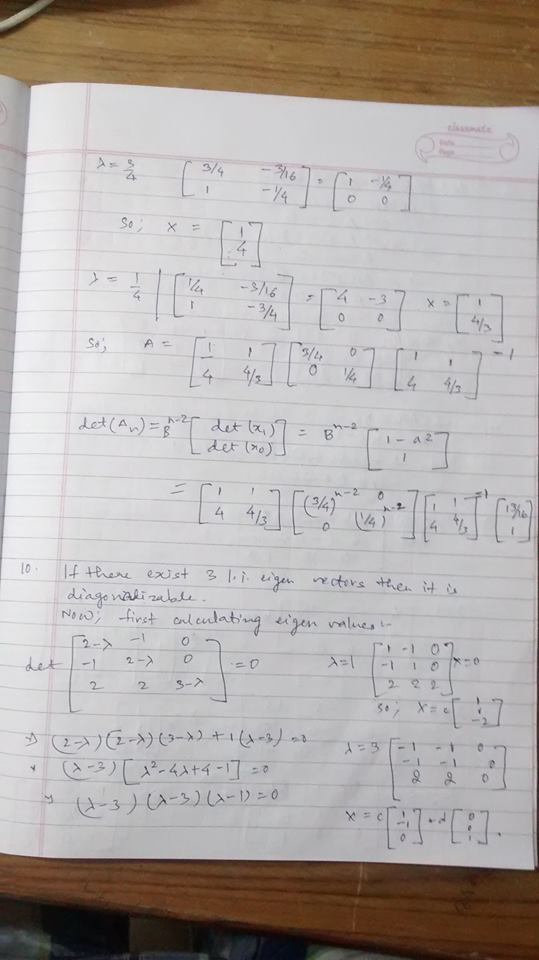 classmate
Date
Page
λ = 3/4 [3/4 -3/16; 1 -1/4] = [1 -1/4; 0 0]
So; x = [1; 4]
λ = 1/4 | [1/4 -3/16; 1 -3/4] = [4 -3; 0 0] x = [1; 4/3]
So; A = [1 1; 4 4/3] [3/4 0; 0 1/4] [1 1; 4 4/3]^-1
det(An) = B^n-2 [det(x1); det(x0)] = B^n-2 [1 - a^2; 1]
= [1 1; 4 4/3] [(3/4)^n-2 0; 0 (1/4)^n-2] [1 1; 4 4/3]^-1 [13/16; 1]
10. If there exist 3 l.i. eigen vectors then it is
diagonalizable.
Now; first calculating eigen values:-
det [2-λ -1 0; -1 2-λ 0; 2 2 3-λ] = 0 λ=1 [1 -1 0; -1 1 0; 2 2 2] x=0
so; x = c [1; 1; -2]
⇒ (2-λ) (2-λ) (3-λ) + 1(λ-3) = 0 λ=3 [-1 -1 0; -1 -1 0; 2 2 0]
(λ-3) [λ^2-4λ+4-1] = 0
(λ-3) (λ-3) (λ-1) = 0
x = c [1; -1; 0] + d [0; 0; 1].